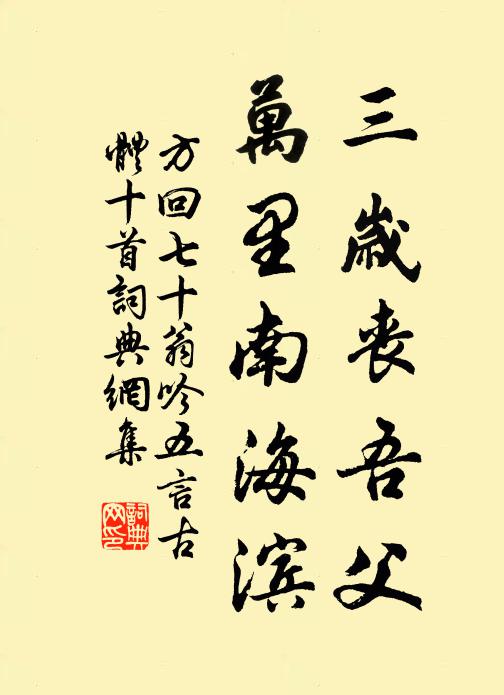 三歲喪吾父
萬里南海滨
方回七十翁吟五言古
體十首詞典網集
詞典网印